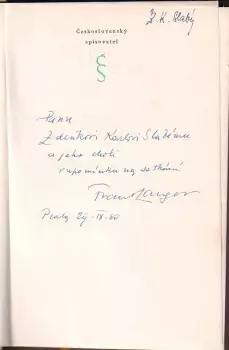 Z. K. Slabý
Československý
spisovatel
Panu
Zdeňkovi Karlovi Slabému
a jeho choti
vzpomínku na setkání
František Langer
Praha 29-IX-60